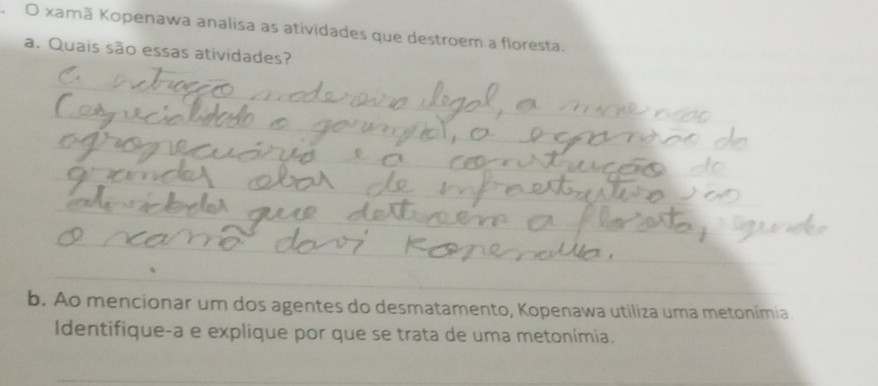 O xamã Kopenawa analisa as atividades que destroem a floresta.
a. Quais são essas atividades?
a extração madereira ilegal, a mineração
(especialidade o garimpo), a expansão da
agropecuária e a construção de
grandes obras de infraestrutura são
atividades que destroem a floresta, segundo
o xamã davi Kopenawa.
b. Ao mencionar um dos agentes do desmatamento, Kopenawa utiliza uma metonímia.
Identifique-a e explique por que se trata de uma metonímia.